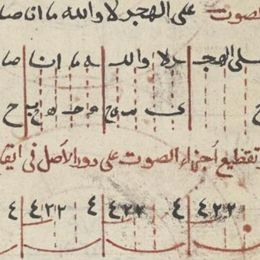 الصوت على الهجر لا والله ما انا صا
لى الهجر لا والله ما انا صا
وتقطيع أجزاء الصوت على دور الأصل في ايقا
٤ ٤٢٢ ٤ ٤٢٢ ٤ ٤٢٢